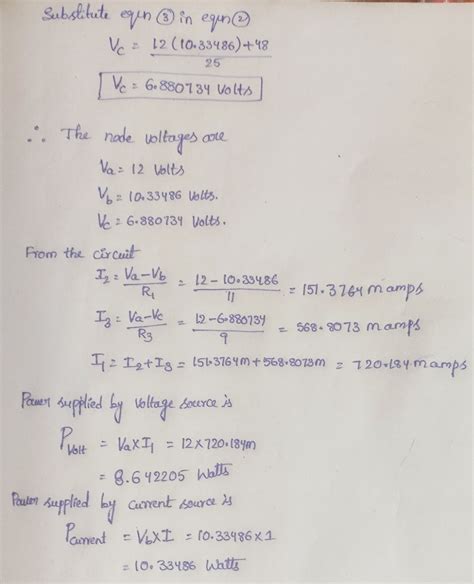 Substitute eqn ③ in eqn ②
Vc = 12(10.33486)+48 / 25
Vc = 6.880734 Volts
∴ The node voltages are
Va = 12 Volts
Vb = 10.33486 Volts.
Vc = 6.880734 Volts.
From the circuit
I2 = Va-Vb / R1 = 12-10.33486 / 11 = 151.3764 m amps
I3 = Va-Vc / R3 = 12-6.880734 / 9 = 568.8073 m amps
I1 = I2+I3 = 151.3764m+568.8073m = 720.184 m amps
Power supplied by voltage source is
PVolt = Va×I1 = 12×720.184m
= 8.642205 Watts
Power supplied by current source is
Pcurrent = Vb×I = 10.33486×1
= 10.33486 Watts